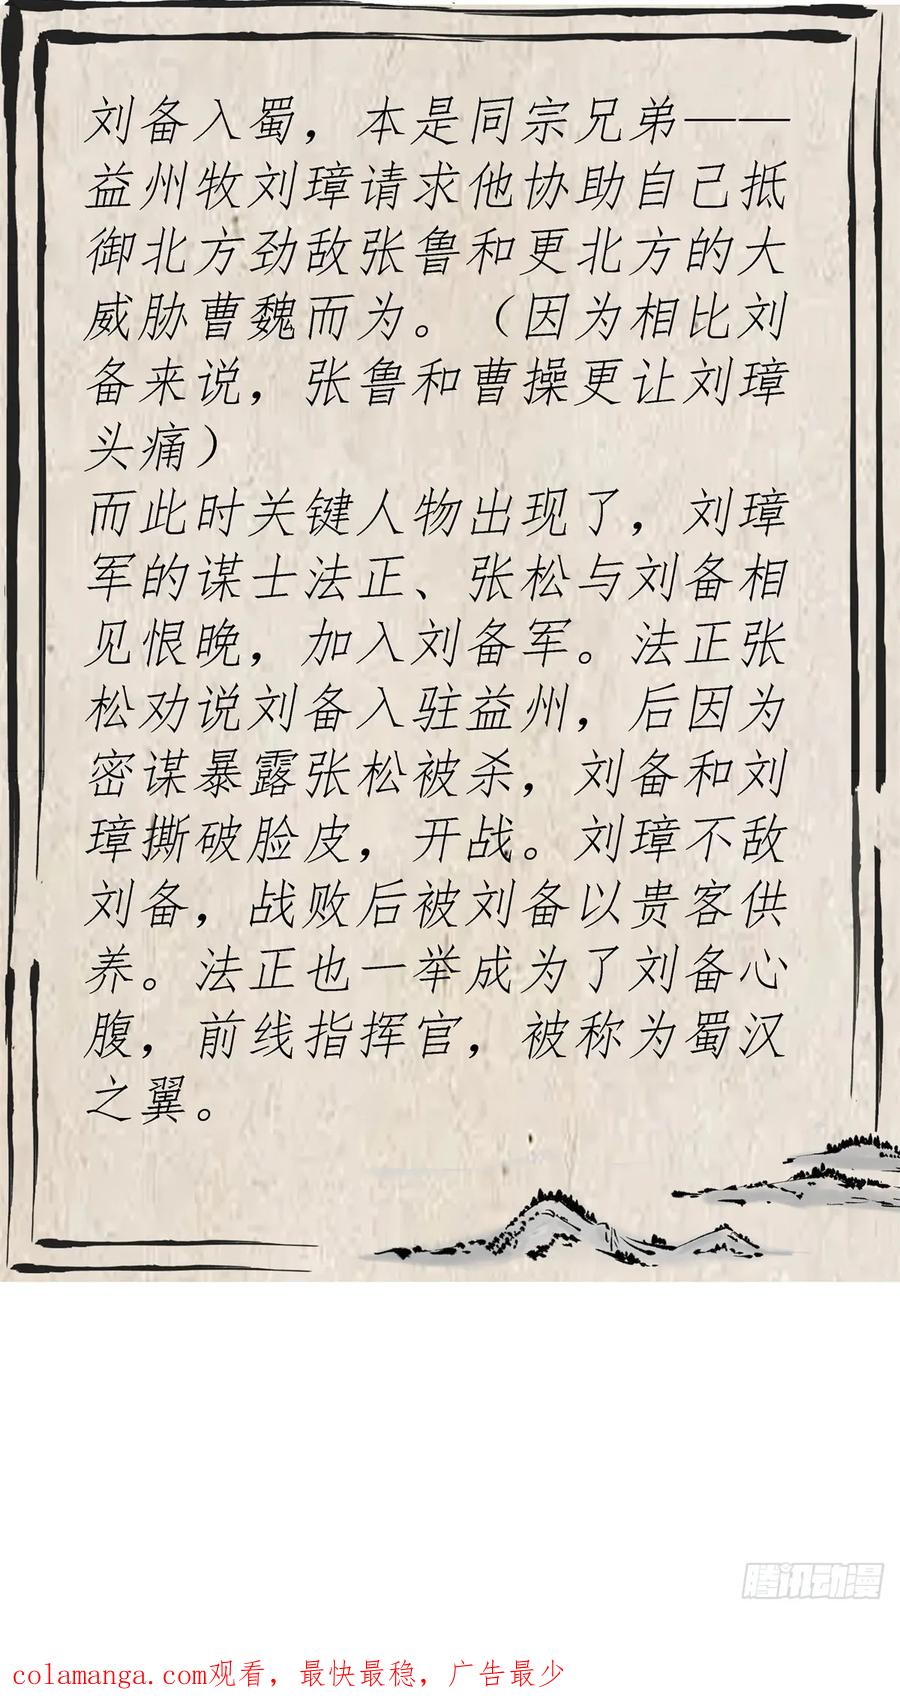 刘备入蜀，本是同宗兄弟——
益州牧刘璋请求他协助自己抵
御北方劲敌张鲁和更北方的大
威胁曹魏而为。（因为相比刘
备来说，张鲁和曹操更让刘璋
头痛）
而此时关键人物出现了，刘璋
军的谋士法正、张松与刘备相
见恨晚，加入刘备军。法正张
松劝说刘备入驻益州，后因为
密谋暴露张松被杀，刘备和刘
璋撕破脸皮，开战。刘璋不敌
刘备，战败后被刘备以贵客供
养。法正也一举成为了刘备心
腹，前线指挥官，被称为蜀汉
之翼。
腾讯动漫
colamanga.com观看，最快最稳，广告最少